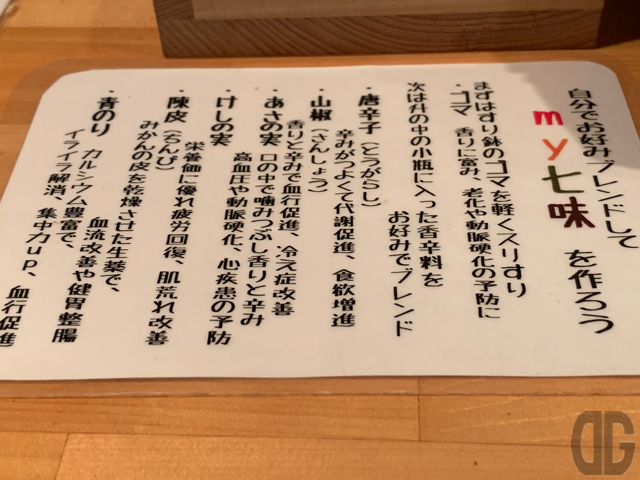 自分でお好みブレンドして
my七味を作ろう
まずはすり鉢のゴマを軽くスリスリ
・ゴマ 香りに富み、老化や動脈硬化の予防に
次は升の中の小瓶に入った香辛料を
お好みでブレンド
・唐辛子(とうがらし)
辛みがつよくて代謝促進、食欲増進
・山椒(さんしょう)
香りと辛みで血行促進、冷え症改善
・あさの実 口の中で噛みつぶし香りと辛み
・けしの実 高血圧や動脈硬化、心疾患の予防
・陳皮(ちんぴ)
栄養価に優れ疲労回復、肌荒れ改善
みかんの皮を乾燥させた生薬で、
血流改善や健胃整腸
・青のり カルシウム豊富で、
イライラ解消、集中力up、血行促進
DG